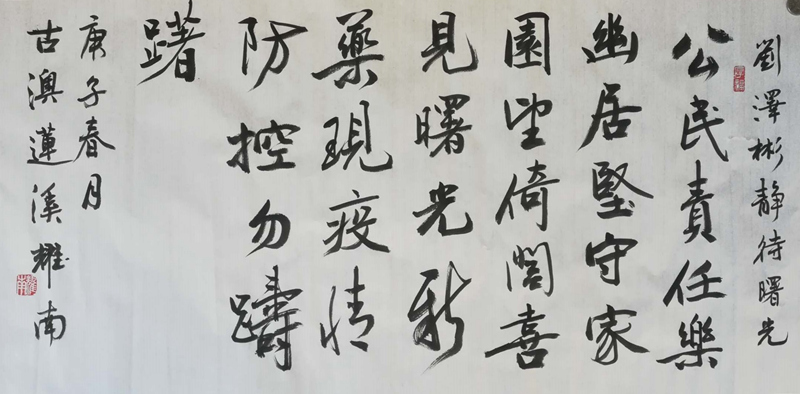 劉澤彬靜待曙光
公民責任樂
幽居堅守家
園望倚閣喜
見曙光新
藥現疫情
防控勿躊
躇
庚子春月
古澳蓮溪耀南